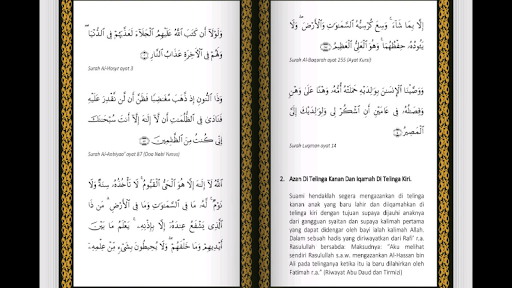 وَلَوْلَآ أَن كَتَبَ ٱللَّهُ عَلَيْهِمُ ٱلْجَلَآءَ لَعَذَّبَهُمْ فِى ٱلدُّنْيَا ۖ
وَلَهُمْ فِى ٱلْءَاخِرَةِ عَذَابُ ٱلنَّارِ
Surah Al-Hasyr ayat 3
وَذَا ٱلنُّونِ إِذ ذَّهَبَ مُغَٰضِبًا فَظَنَّ أَن لَّن نَّقْدِرَ عَلَيْهِ
فَنَادَىٰ فِى ٱلظُّلُمَٰتِ أَن لَّآ إِلَٰهَ إِلَّآ أَنتَ سُبْحَٰنَكَ
إِنِّى كُنتُ مِنَ ٱلظَّٰلِمِينَ
Surah Al-Anbiyaa' ayat 87 (Doa Nabi Yunus)
ٱللَّهُ لَآ إِلَٰهَ إِلَّا هُوَ ٱلْحَىُّ ٱلْقَيُّومُ ۚ لَا تَأْخُذُهُۥ سِنَةٌ وَلَا
نَوْمٌ ۚ لَّهُۥ مَا فِى ٱلسَّمَٰوَٰتِ وَمَا فِى ٱلْأَرْضِ ۗ مَن ذَا
ٱلَّذِى يَشْفَعُ عِندَهُۥٓ إِلَّا بِإِذْنِهِۦ ۚ يَعْلَمُ مَا بَيْنَ
أَيْدِيهِمْ وَمَا خَلْفَهُمْ ۖ وَلَا يُحِيطُونَ بِشَىْءٍ مِّنْ عِلْمِهِۦٓ
إِلَّا بِمَا شَآءَ ۚ وَسِعَ كُرْسِيُّهُ ٱلسَّمَٰوَٰتِ وَٱلْأَرْضَ ۖ وَلَا
يَـُٔودُهُۥ حِفْظُهُمَا ۚ وَهُوَ ٱلْعَلِىُّ ٱلْعَظِيمُ
Surah Al-Baqarah ayat 255 (Ayat Kursi)
وَوَصَّيْنَا ٱلْإِنسَٰنَ بِوَٰلِدَيْهِ حَمَلَتْهُ أُمُّهُۥ وَهْنًا عَلَىٰ وَهْنٍ
وَفِصَٰلُهُۥ فِى عَامَيْنِ أَنِ ٱشْكُرْ لِى وَلِوَٰلِدَيْكَ إِلَىَّ
ٱلْمَصِيرُ
Surah Luqman ayat 14
2. Azan Di Telinga Kanan Dan Iqamah Di Telinga Kiri.
Suami hendaklah segera mengazankan di telinga
kanan anak yang baru lahir dan diiqamahkan di
telinga kiri dengan tujuan supaya dijauhi anaknya
dari gangguan syaitan dan supaya kalimah pertama
yang dapat didengar oleh bayi ialah kalimah Allah.
Dalam sebuah hadis yang diriwayatkan dari Rafi' r.a.
Rasulullah bersabda: Maksudnya: "Aku melihat
sendiri Rasulullah s.a.w. mengazankan Al-Hassan bin
Ali pada telinganya ketika itu ia baru dilahirkan oleh
Fatimah r.a." (Riwayat Abu Daud dan Tirmizi)